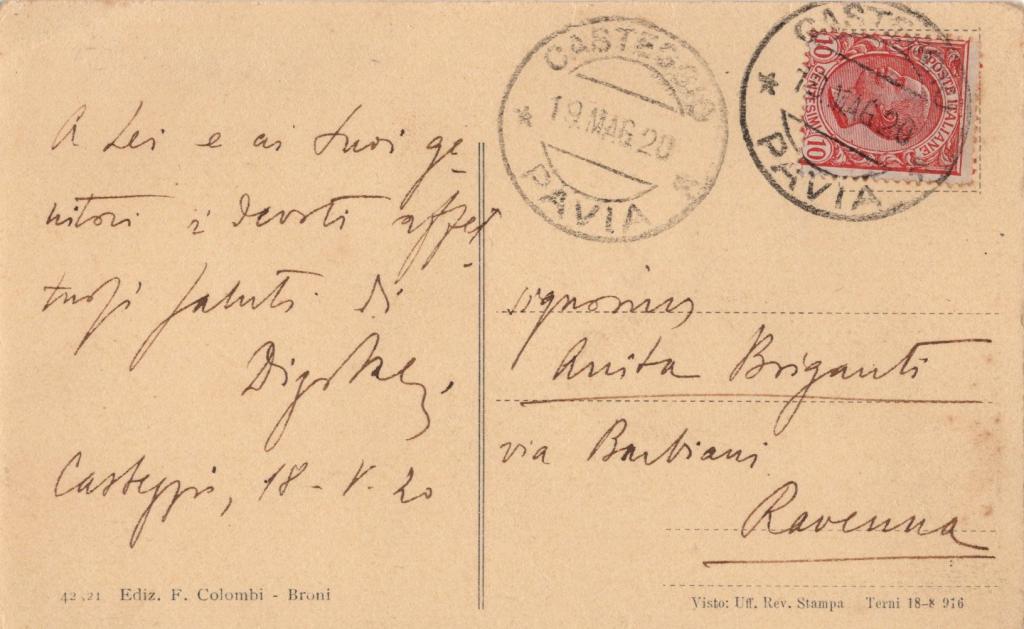 A Lei e ai suoi ge-
nitori i devoti affet-
tuosi saluti di

Casteggio, 18-V-20
42.21 Ediz. F. Colombi - Broni
CASTEGGIO
19.MAG.20
PAVIA
CASTEGGIO
MAG.20
PAVIA
POSTE ITALIANE
10 CENTESIMI 10
signorina
Anita Briganti
via Barbiani
Ravenna
Visto: Uff. Rev. Stampa Terni 18-8 916